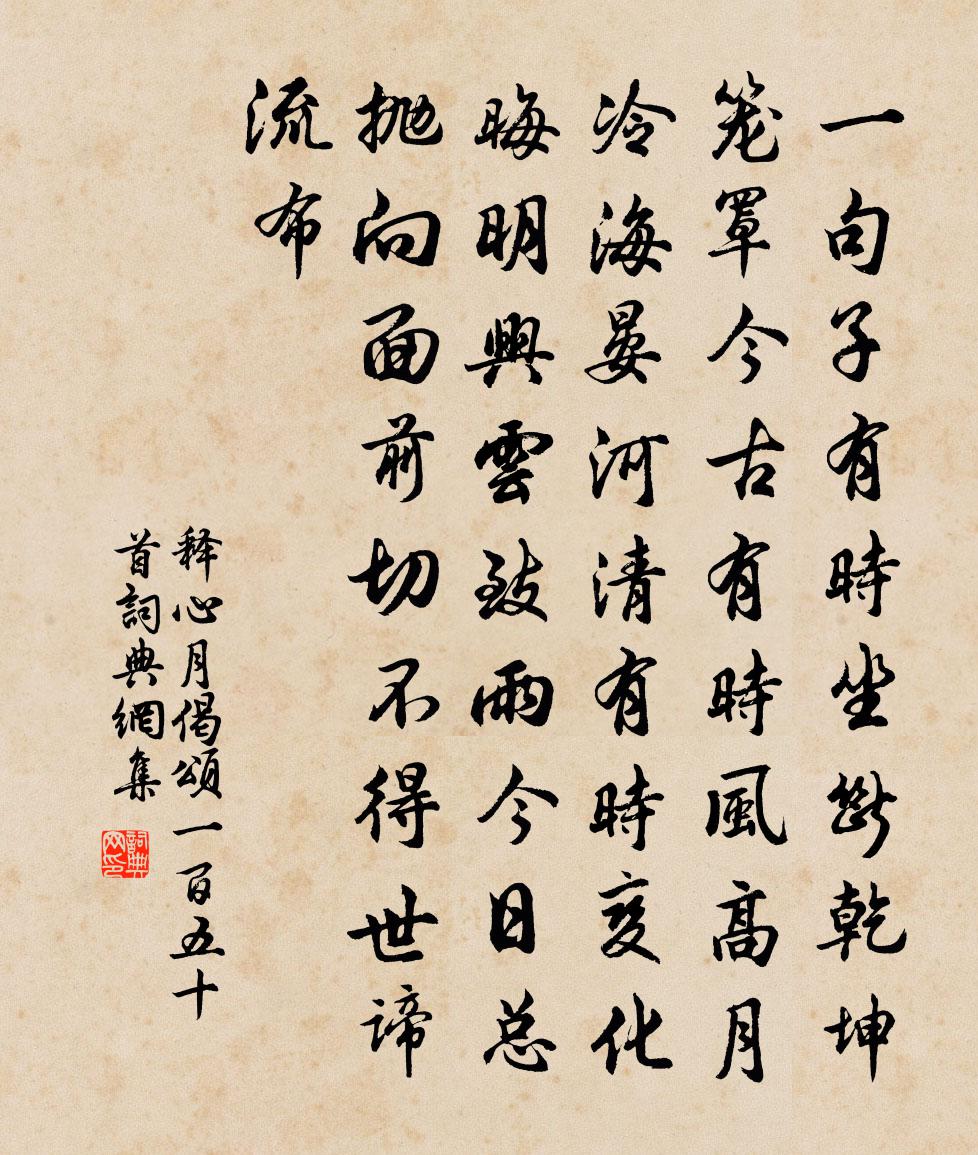 一句子有時坐斷乾坤
笼罩今古有時風高月
冷海晏河清有時变化
晦明興雲致雨今日总
抛向面前切不得世諦
流布
释心月偈頌一百五十
首詞典網集
詞典
网印